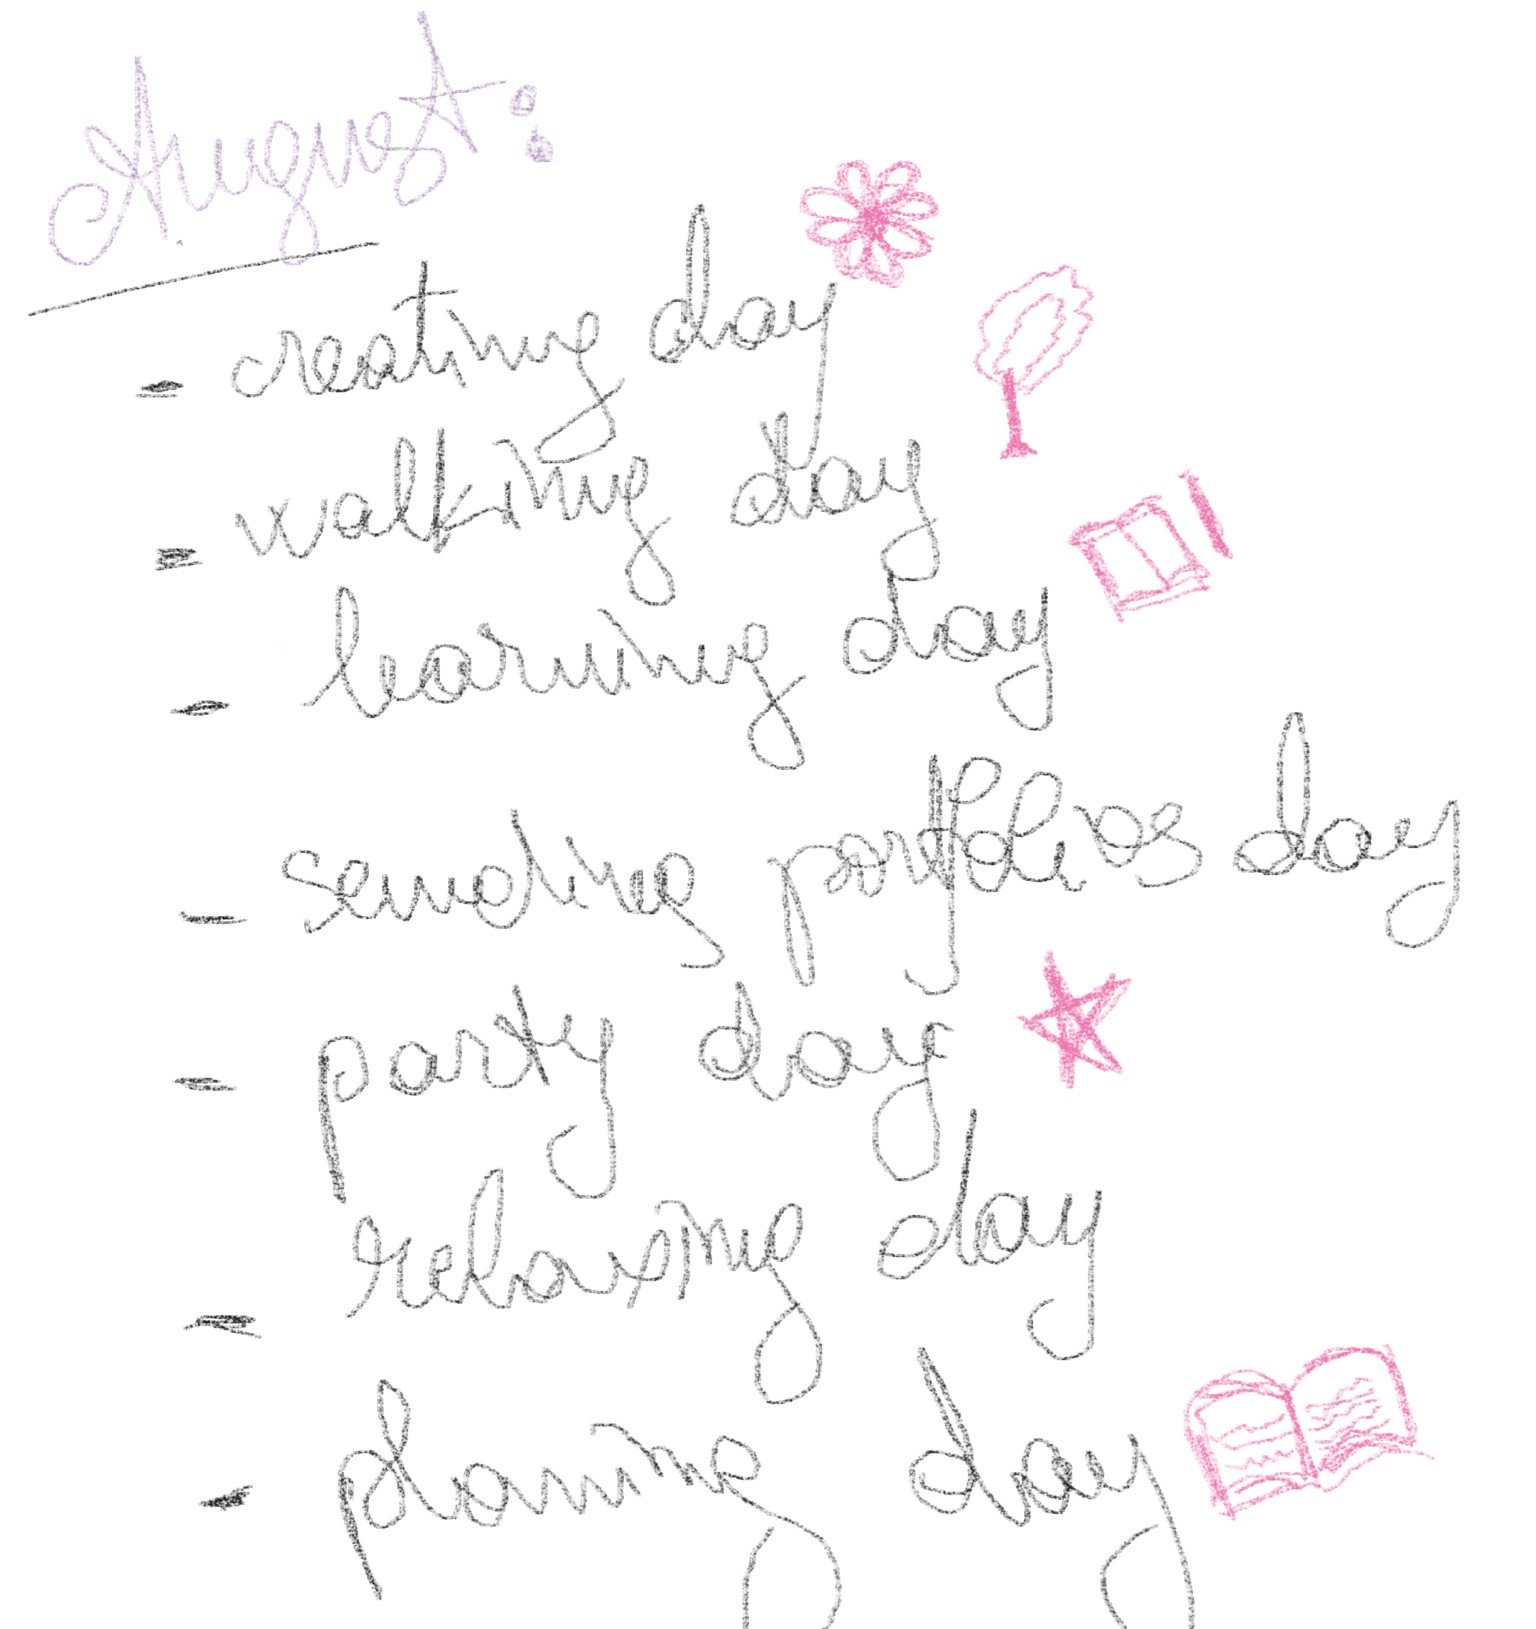 August:
- creating day
- walking day
- learning day
- sending portfolios day
- party day
- relaxing day
- planing day